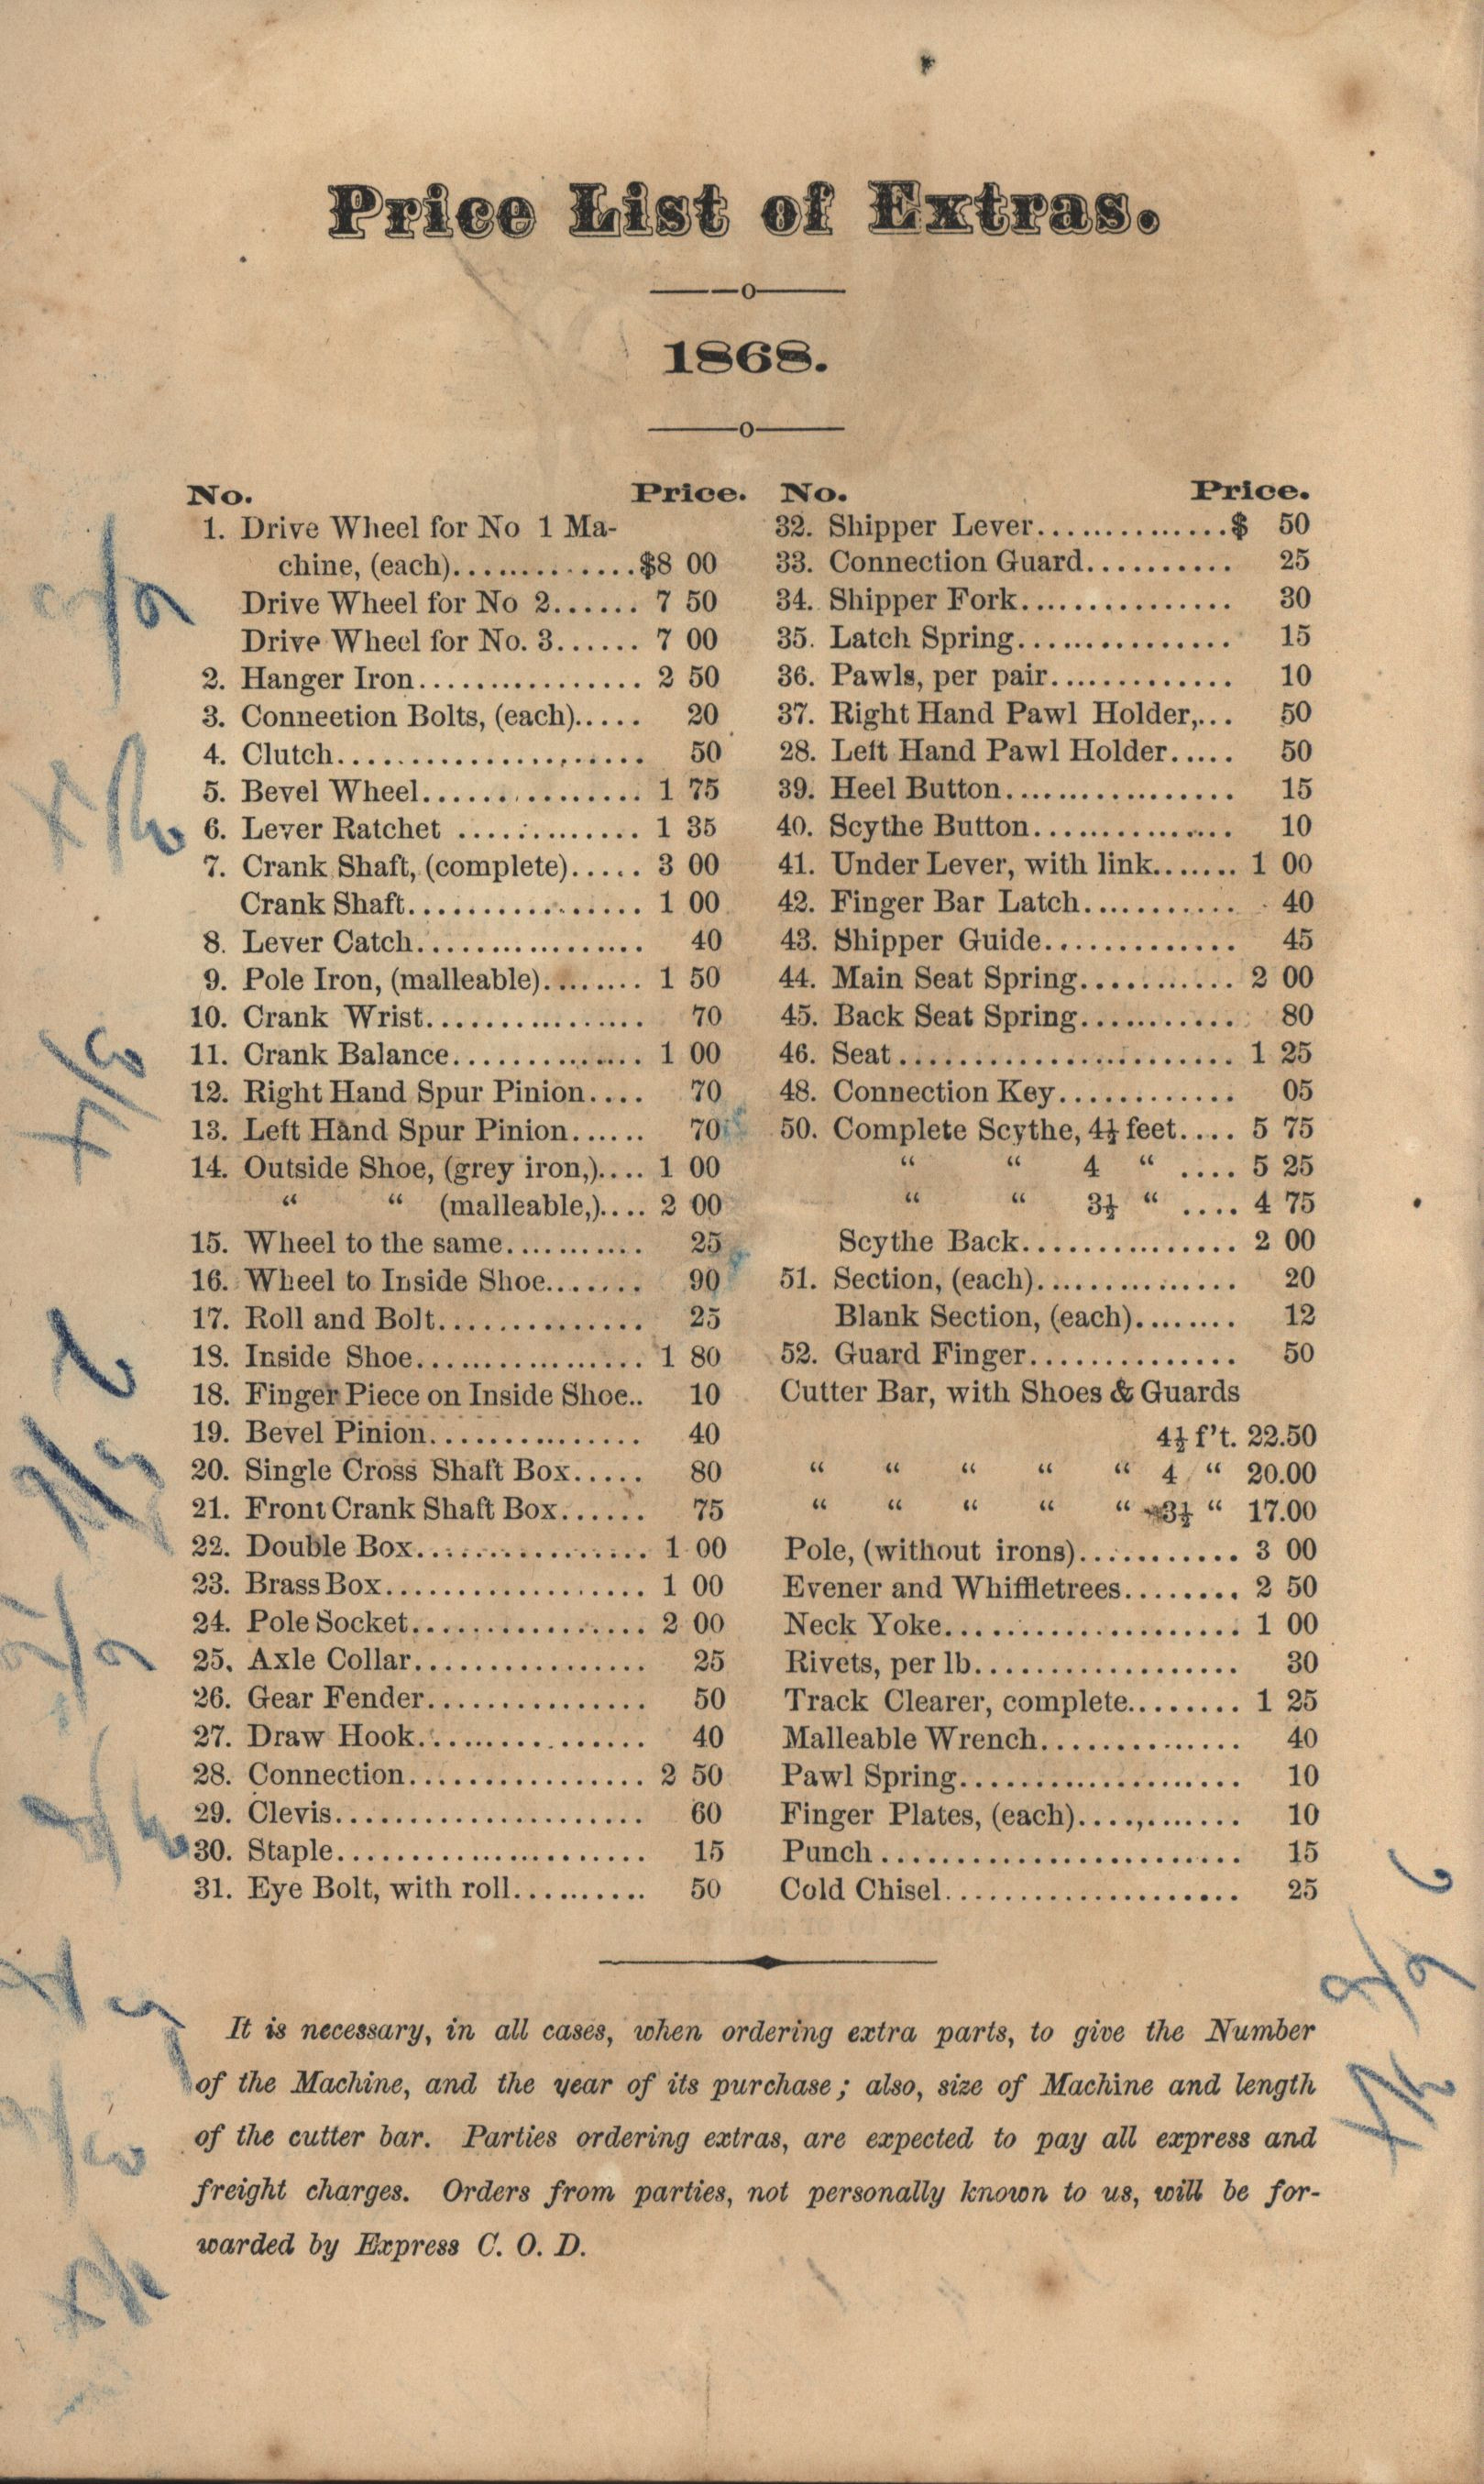 Price List of Extras.
1868.
No. Price.
1. Drive Wheel for No 1 Ma-
chine, (each)..............$8 00
Drive Wheel for No 2...... 7 50
Drive Wheel for No. 3...... 7 00
2. Hanger Iron................ 2 50
3. Connection Bolts, (each)..... 20
4. Clutch..................... 50
5. Bevel Wheel............... 1 75
6. Lever Ratchet ............. 1 35
7. Crank Shaft, (complete)..... 3 00
Crank Shaft................ 1 00
8. Lever Catch................ 40
9. Pole Iron, (malleable)........ 1 50
10. Crank Wrist............... 70
11. Crank Balance............. 1 00
12. Right Hand Spur Pinion.... 70
13. Left Hand Spur Pinion...... 70
14. Outside Shoe, (grey iron,).... 1 00
“ “ (malleable,).... 2 00
15. Wheel to the same.......... 25
16. Wheel to Inside Shoe....... 90
17. Roll and Bolt.............. 25
18. Inside Shoe................ 1 80
18. Finger Piece on Inside Shoe.. 10
19. Bevel Pinion............... 40
20. Single Cross Shaft Box..... 80
21. Front Crank Shaft Box...... 75
22. Double Box................ 1 00
23. Brass Box.................. 1 00
24. Pole Socket................ 2 00
25. Axle Collar................ 25
26. Gear Fender............... 50
27. Draw Hook................ 40
28. Connection................ 2 50
29. Clevis..................... 60
30. Staple..................... 15
31. Eye Bolt, with roll.......... 50
No. Price.
32. Shipper Lever..............$ 50
33. Connection Guard.......... 25
34. Shipper Fork............... 30
35. Latch Spring............... 15
36. Pawls, per pair............. 10
37. Right Hand Pawl Holder,... 50
28. Left Hand Pawl Holder..... 50
39. Heel Button................ 15
40. Scythe Button.............. 10
41. Under Lever, with link....... 1 00
42. Finger Bar Latch........... 40
43. Shipper Guide............. 45
44. Main Seat Spring........... 2 00
45. Back Seat Spring........... 80
46. Seat....................... 1 25
48. Connection Key............ 05
50. Complete Scythe, 4½ feet.... 5 75
“ “ 4 “ .... 5 25
“ “ 3½ “ .... 4 75
Scythe Back............... 2 00
51. Section, (each).............. 20
Blank Section, (each)........ 12
52. Guard Finger.............. 50
Cutter Bar, with Shoes & Guards
4½ f't. 22.50
“ “ “ “ “ 4 “ 20.00
“ “ “ “ “ 3½ “ 17.00
Pole, (without irons)........... 3 00
Evener and Whiffletrees........ 2 50
Neck Yoke.................... 1 00
Rivets, per lb.................. 30
Track Clearer, complete........ 1 25
Malleable Wrench.............. 40
Pawl Spring................... 10
Finger Plates, (each)....,...... 10
Punch........................ 15
Cold Chisel.................... 25
It is necessary, in all cases, when ordering extra parts, to give the Number
of the Machine, and the year of its purchase; also, size of Machine and length
of the cutter bar. Parties ordering extras, are expected to pay all express and
freight charges. Orders from parties, not personally known to us, will be for-
warded by Express C. O. D.